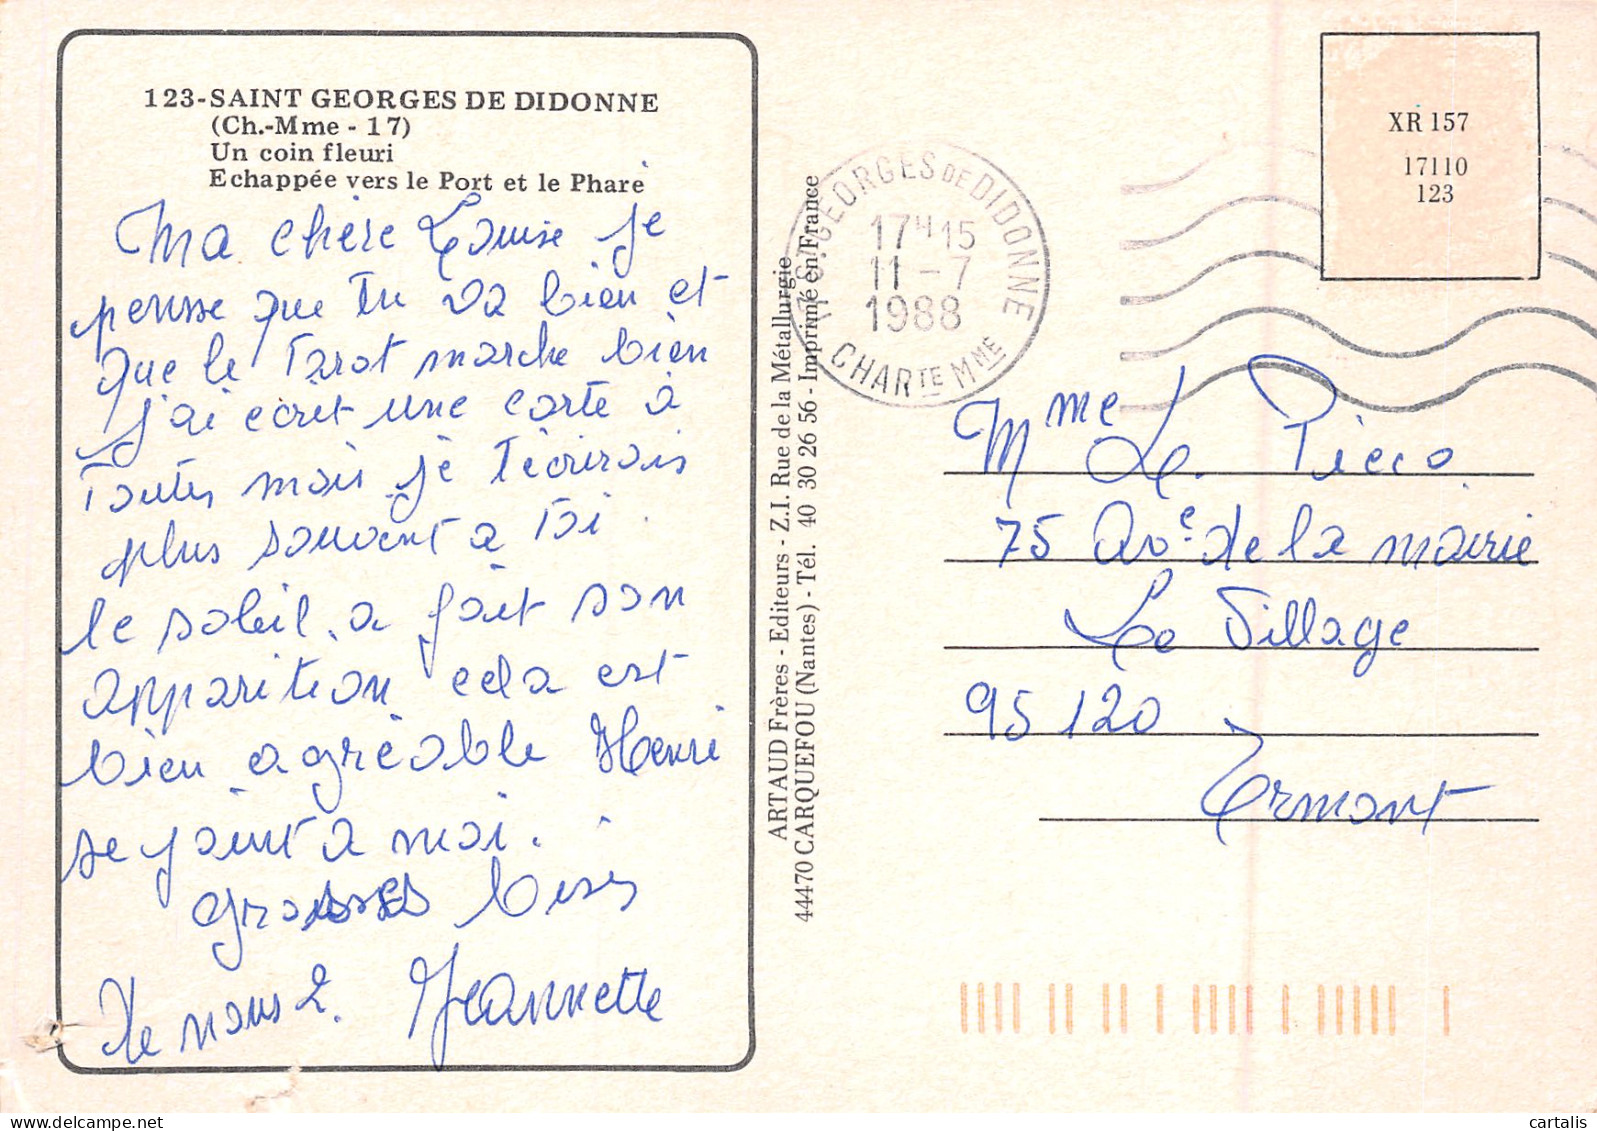 123-SAINT GEORGES DE DIDONNE
(Ch.-Mme - 17)
Un coin fleuri
Echappée vers le Port et le Phare
Ma chère Louise je
pense que tu va bien et
que le Tarot marche bien
j'ai ecrit une carte a
Toutes mais je T'écrirais
plus souvent a Toi.
le soleil a fait son
apparition cela est
bien agréable Henri
se joint a moi.
grosses bises
De nous 2. Jeannette
ARTAUD Frères - Editeurs - Z.I. Rue de la Métallurgie
44470 CARQUEFOU (Nantes) - Tél. 40 30 26 56 - Imprimé en France
17 ST GEORGES DE DIDONNE
17H15
11-7
1988
CHARTE MME
XR 157
17110
123
Mme Le
75 Ave de la mairie
Le Village
95120
Ermont
cartalis